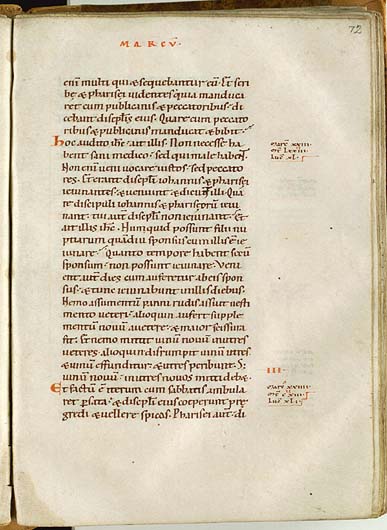 72
MARCV·
eni multi qui & sequebantur eū. & scri
bę & pharisei uidentes quia manduca
ret cum publicanis & peccatoribus· di
cebant discipłis eius. Quare cum pecca
toribus & publicanis manducat & bibit
hoc audito ihc· ait illis. Non necesse ha
bent sani medico· sed qui male habent
Non enī ueni uocare iustos· sed peccato
res. & erant discipłi iohannis & pharisei
ieiunantes· & ueniunt & dicunt illi. Qua
re discipuli iohannis & phariseorū ieiu
nant· tui aut discipłi non ieiunant. Et
ait illis ihc. Numquid possunt filii nu
ptiarum quādiu sponsus cum illis ē· ie
iunare. Quanto tempore habent secū
sponsum· non possunt ieiunare. Veni
ent aut dies cum auferetur ab eis spon
sus· & tunc ieiunabunt in illis diebus.
Nemo assumentū panni rudis assuit uesti
mento ueteri· alioquin aufert supple
mentū nouū a uetere· & maior scissura
fit. Et nemo mittit uinū nouū in utres
ueteres· alioquin disrumpit uinum utres
& uinū effunditur· & utres peribunt. S;
uinū nouū· in utres nouos mitti debet.
Et factū ē iterum cum sabbatis ambula
ret p sata· & discipłi eius coeperunt pre
gredi & uellere spicas. Pharisei aut di
marc xxiii
matt lxxiii
luc xl
III·
marc xxiiii
matt cxiiii
luc xli